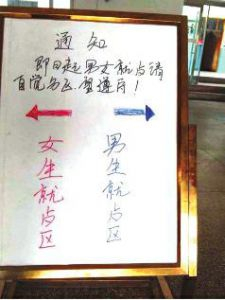 通知
即日起男女就歺请
自觉分区望遵守!
女生就歺区
男生就歺区